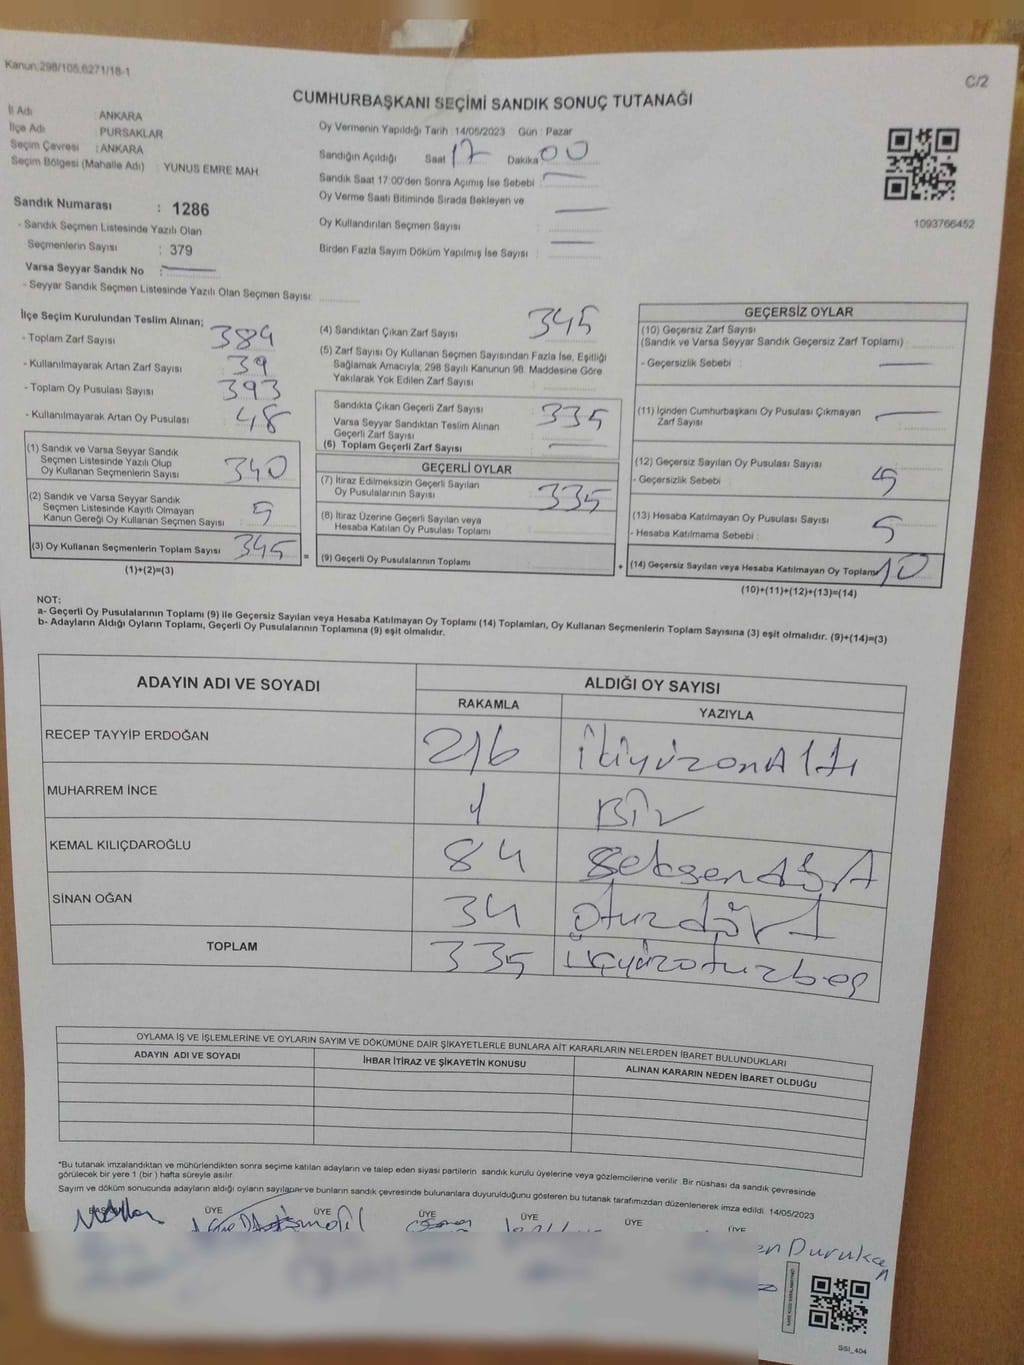 Kanun:298/105,6271/18-1
C/2
CUMHURBAŞKANI SEÇİMİ SANDIK SONUÇ TUTANAĞI
İl Adı : ANKARA
İlçe Adı : PURSAKLAR
Seçim Çevresi : ANKARA
Seçim Bölgesi (Mahalle Adı) : YUNUS EMRE MAH.
Sandık Numarası : 1286
- Sandık Seçmen Listesinde Yazılı Olan
Seçmenlerin Sayısı : 379
Varsa Seyyar Sandık No :
- Seyyar Sandık Seçmen Listesinde Yazılı Olan Seçmen Sayısı:
Oy Vermenin Yapıldığı Tarih :14/05/2023 Gün : Pazar
Sandığın Açıldığı Saat 17 Dakika 00
Sandık Saat 17:00'den Sonra Açımış İse Sebebi :
Oy Verme Saati Bitiminde Sırada Bekleyen ve
Oy Kullandırılan Seçmen Sayısı :
Birden Fazla Sayım Döküm Yapılmış İse Sayısı :
1093766452
İlçe Seçim Kurulundan Teslim Alınan;
- Toplam Zarf Sayısı 384
- Kullanılmayarak Artan Zarf Sayısı 39
- Toplam Oy Pusulası Sayısı 393
- Kullanılmayarak Artan Oy Pusulası 48
(1) Sandık ve Varsa Seyyar Sandık
Seçmen Listesinde Yazılı Olup
Oy Kullanan Seçmenlerin Sayısı 340
(2) Sandık ve Varsa Seyyar Sandık
Seçmen Listesinde Kayıtlı Olmayan
Kanun Gereği Oy Kullanan Seçmen Sayısı 5
(3) Oy Kullanan Seçmenlerin Toplam Sayısı 345
(1)+(2)=(3)
=
(4) Sandıktan Çıkan Zarf Sayısı 345
(5) Zarf Sayısı Oy Kullanan Seçmen Sayısından Fazla İse, Eşitliği
Sağlamak Amacıyla, 298 Sayılı Kanunun 98. Maddesine Göre
Yakılarak Yok Edilen Zarf Sayısı
Sandıkta Çıkan Geçerli Zarf Sayısı 335
Varsa Seyyar Sandıktan Teslim Alınan
Geçerli Zarf Sayısı
(6) Toplam Geçerli Zarf Sayısı
GEÇERLİ OYLAR
(7) İtiraz Edilmeksizin Geçerli Sayılan
Oy Pusulalarının Sayısı 335
(8) İtiraz Üzerine Geçerli Sayılan veya
Hesaba Katılan Oy Pusulası Toplamı
(9) Geçerli Oy Pusulalarının Toplamı
+
GEÇERSİZ OYLAR
(10) Geçersiz Zarf Sayısı
(Sandık ve Varsa Seyyar Sandık Geçersiz Zarf Toplamı)
- Geçersizlik Sebebi :
(11) İçinden Cumhurbaşkanı Oy Pusulası Çıkmayan
Zarf Sayısı
(12) Geçersiz Sayılan Oy Pusulası Sayısı
- Geçersizlik Sebebi : 5
(13) Hesaba Katılmayan Oy Pusulası Sayısı
- Hesaba Katılmama Sebebi : 5
(14) Geçersiz Sayılan veya Hesaba Katılmayan Oy Toplamı 10
(10)+(11)+(12)+(13)=(14)
NOT:
a- Geçerli Oy Pusulalarının Toplamı (9) ile Geçersiz Sayılan veya Hesaba Katılmayan Oy Toplamı (14) Toplamları, Oy Kullanan Seçmenlerin Toplam Sayısına (3) eşit olmalıdır. (9)+(14)=(3)
b- Adayların Aldığı Oyların Toplamı, Geçerli Oy Pusulalarının Toplamına (9) eşit olmalıdır.
ADAYIN ADI VE SOYADI
ALDIĞI OY SAYISI
RAKAMLA YAZIYLA
RECEP TAYYİP ERDOĞAN 216 ikiyüzonAltı
MUHARREM İNCE 1 Bir
KEMAL KILIÇDAROĞLU 84 Seksendört
SİNAN OĞAN 34 Otuzdört
TOPLAM 335 üçyüzotuzbeş
OYLAMA İŞ VE İŞLEMLERİNE VE OYLARIN SAYIM VE DÖKÜMÜNE DAİR ŞİKAYETLERLE BUNLARA AİT KARARLARIN NELERDEN İBARET BULUNDUKLARI
ADAYIN ADI VE SOYADI İHBAR İTİRAZ VE ŞİKAYETİN KONUSU ALINAN KARARIN NEDEN İBARET OLDUĞU
*Bu tutanak imzalandıktan ve mühürlendikten sonra seçime katılan adayların ve talep eden siyasi partilerin sandık kurulu üyelerine veya gözlemcilerine verilir .Bir nüshası da sandık çevresinde
görülecek bir yere 1 (bir ) hafta süreyle asılır.
Sayım ve döküm sonucunda adayların aldığı oyların sayılarıyla bunların sandık çevresinde bulunanlara duyurulduğunu gösteren bu tutanak tarafımızdan düzenlenerek imza edildi. 14/05/2023
BAŞKAN ÜYE ÜYE ÜYE ÜYE ÜYE ÜYE
en Durukan
SSI_404